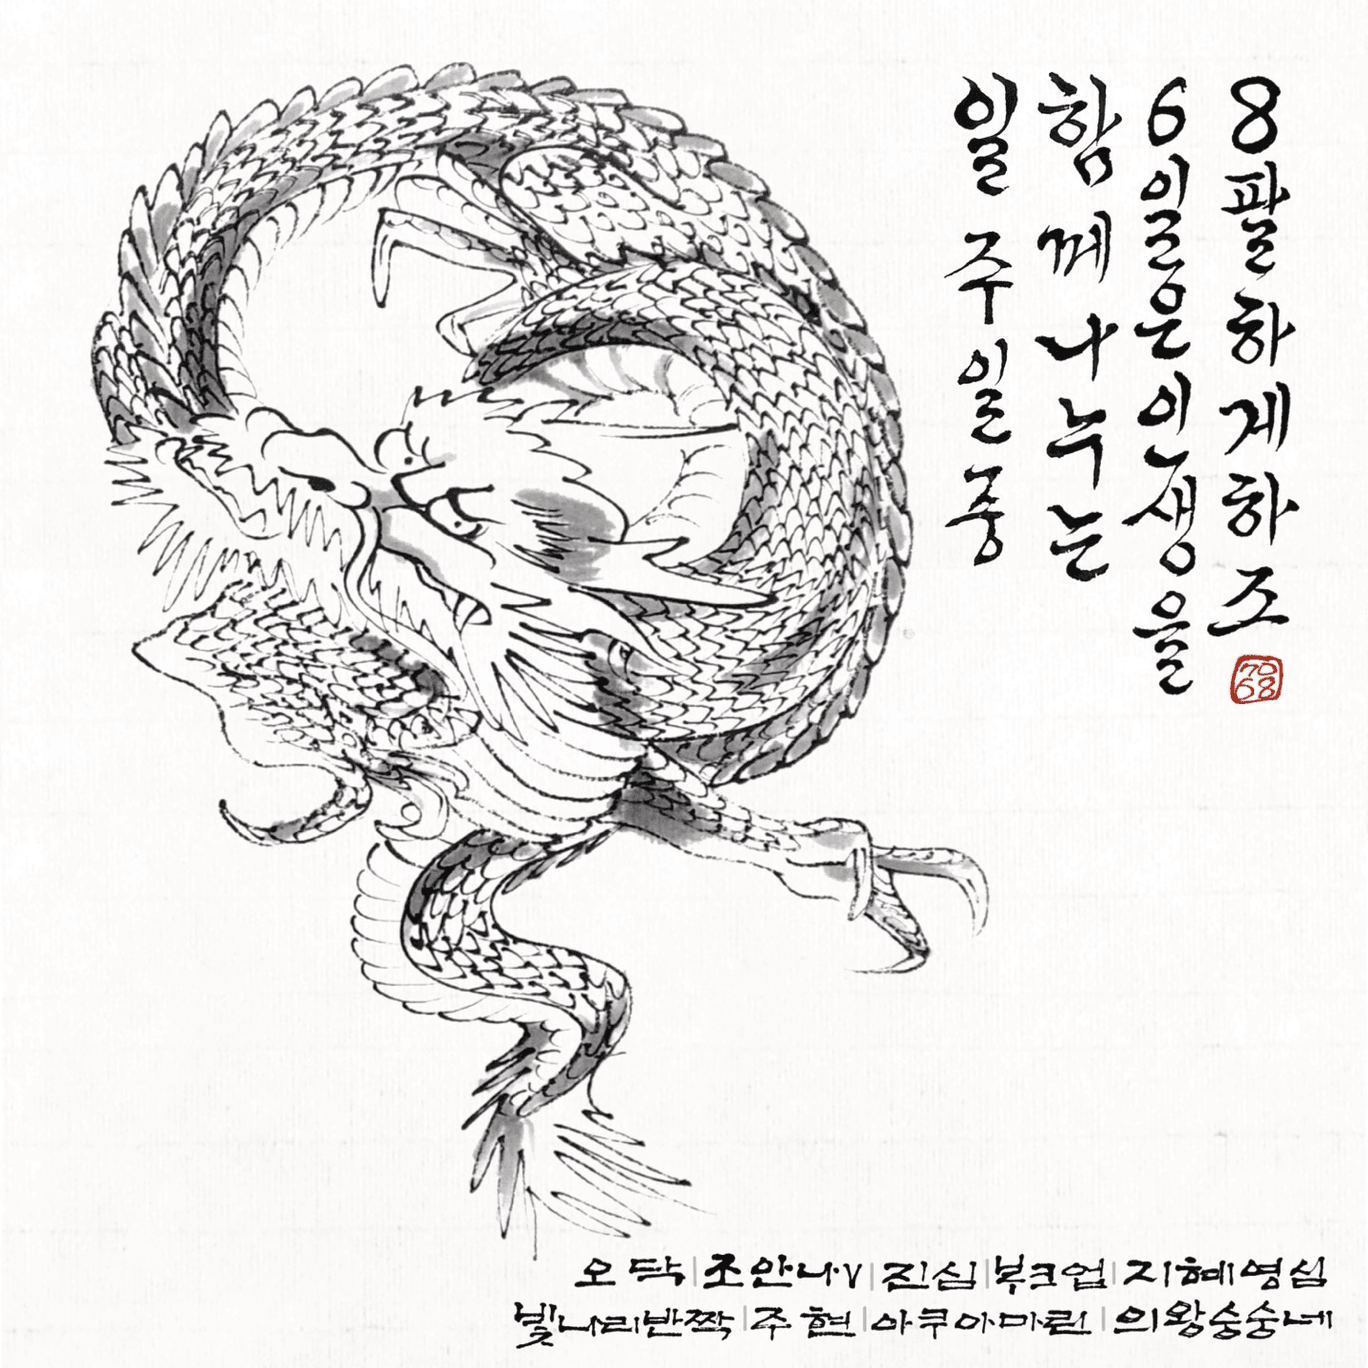 8팔하게하조
6일은인생을
함께나누는
일주일중
7068
오닥|조안나.v|진심|북크업|지혜영심
빛나리반짝|주현|아쿠아마린|의왕숭숭네